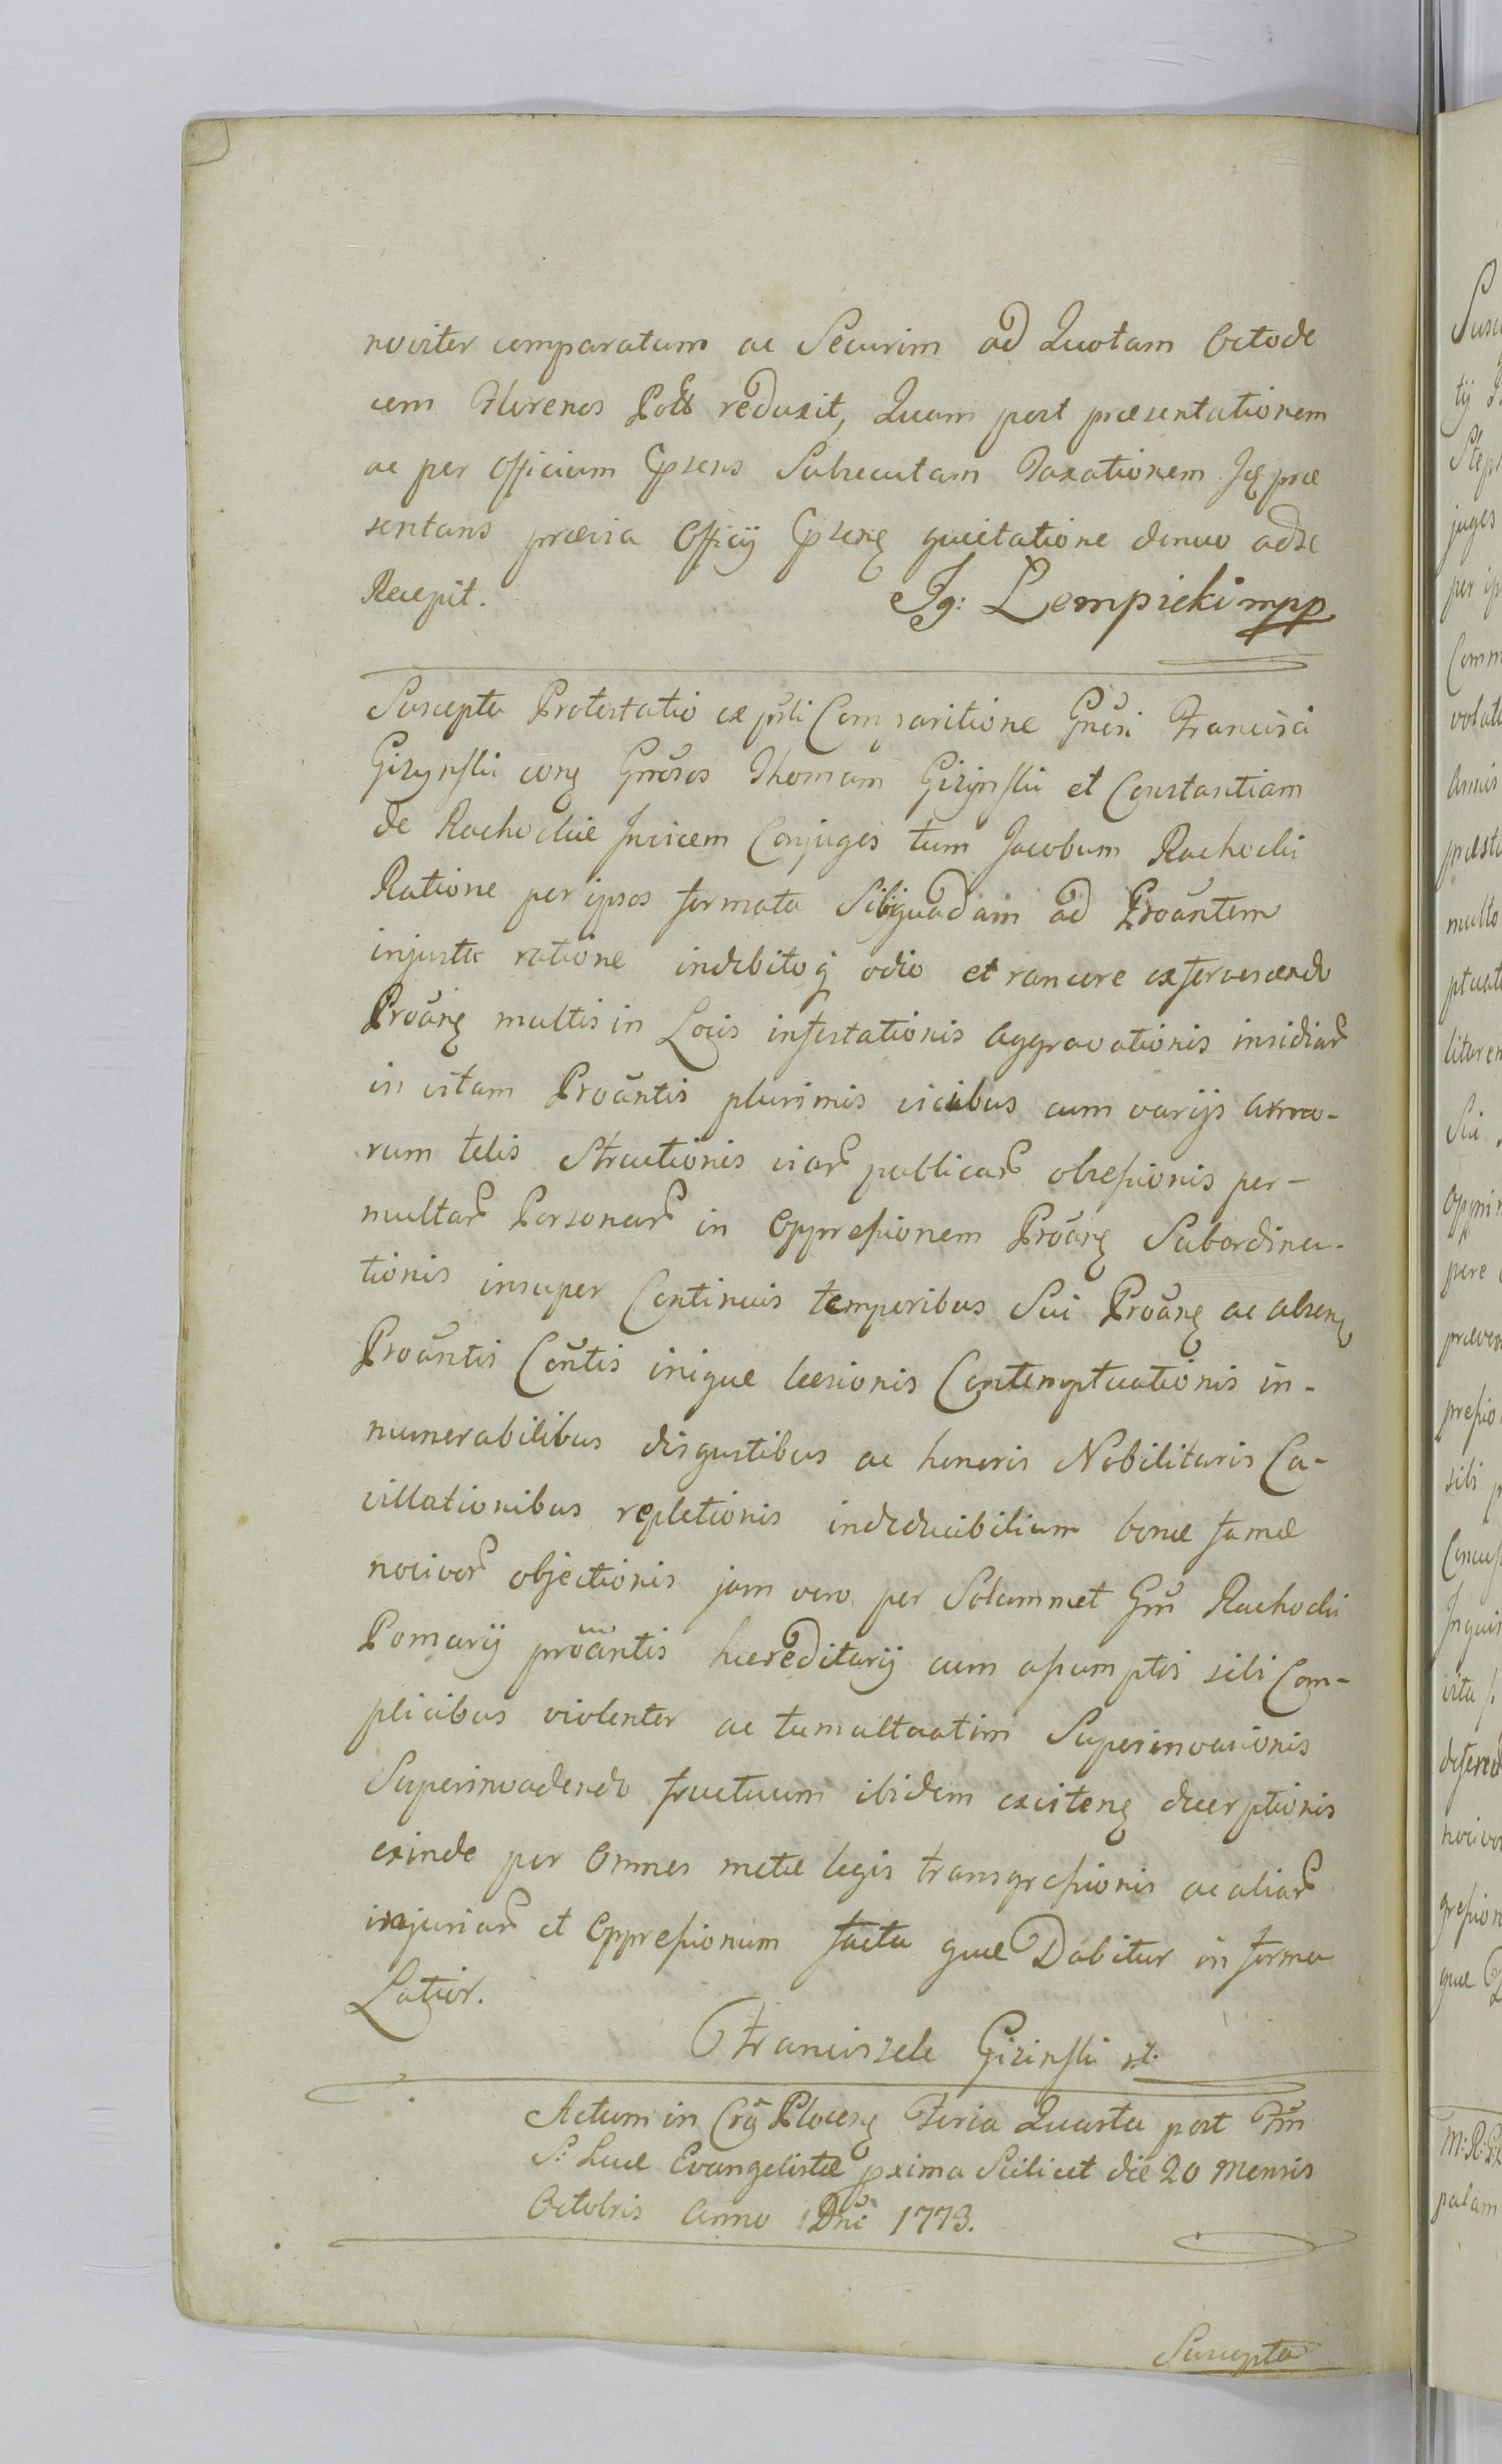 noviter comparatum ac Securim ad Quotam Octode
cem Florenos Poll reduxit, Quam post præsentationem
ac per Officium Cpsens Subsecutam Taxationem Jq præ
sentans prævia Officij Cpsenq quietatione denuo ad se
Recepit.
Ig: Lempicki mpp
Suscepta Protestatio ex psti Comparitione Gnĕsi Francisci
Gizynski conq Gnrŏsos Thomam Gizynski et Constantiam
de Rachockie Invicem Conjuges tum Jacobum Rachocki
Ratione per ipsos formata Sibi quadam ad Proăntem
injusta ratione indebitoq odio et rancore exfervescendo
Proănq multis in Locis infestationis aggravationis insidiar
in vitam Proăntis plurimis vicibus cum varijs armo-
rum telis Structionis viar publicar obsessionis per-
multar Personar in Oppressionem Proănq Subordina-
tionis insuper Continuis temporibus Sui Proănq ac absenq
Proăntis Coñtis inique læsionis Contemptuationis in-
numerabilibus disgustibus ac honoris Nobilitaris Ca-
villationibus repletionis indeducibilium bonæ famæ
nocivor objectionis jam vero per Solummet Gm̃ Rachocki
Pomarij proăntis hæreditarij cum assumptis sibi Com-
plicibus violenter ac tumultuatim Superinvasionis
Superinvadendo fructuum ibidem existenq decerptionis
exinde per Omnes metæ legis transgressionis ac aliar
injuriar et Oppressionum facta quæ Dabitur in forma
Latior.
Franciszek Gizinski
Actum in Crĩa Plocenq Feria Quarta post Fm̃
S: Lucæ Evangelistæ pxima Scilicet die 20 Mensis
Octobris Anno Dnĩ 1773.
Suscepta